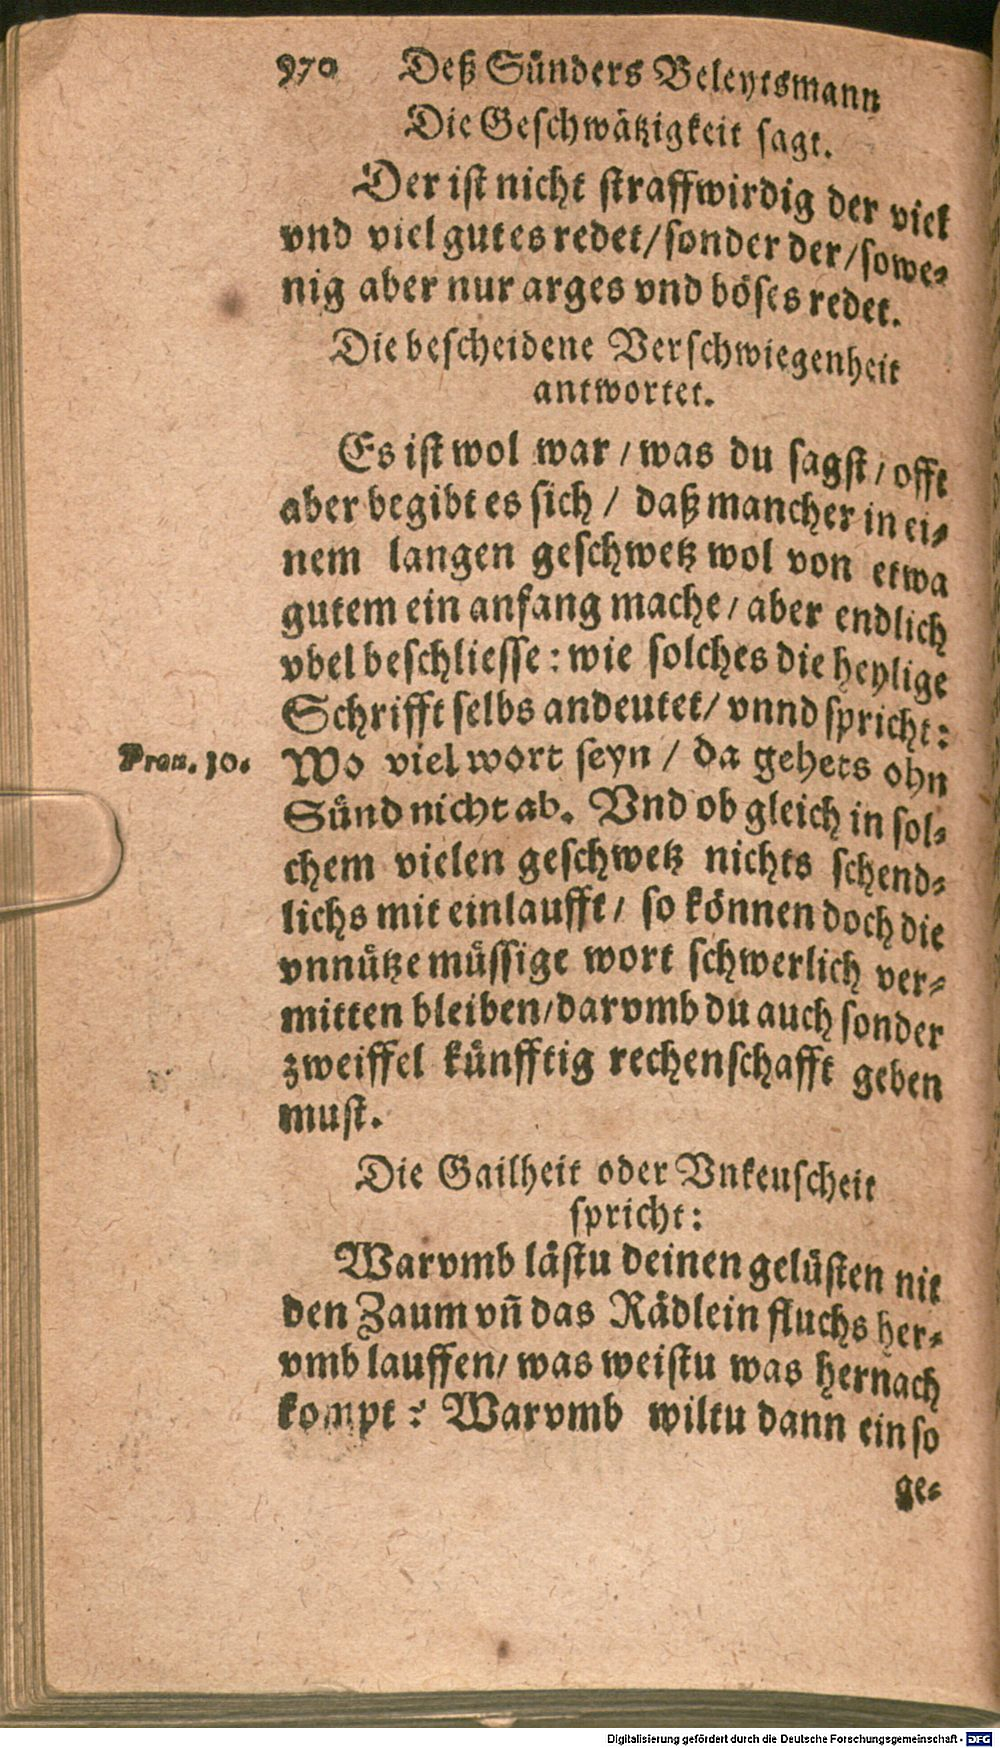 970 Deß Sünders Beleytsmann
Die Geschwätzigkeit sagt.
Der ist nicht straffwirdig der viel
vnd viel gutes redet/sonder der/sowe-
nig aber nur arges vnd böses redet.
Die bescheidene Verschwiegenheit
antwortet.
Es ist wol war/was du sagst/offt
aber begibt es sich/ daß mancher in ei-
nem langen geschwetz wol von etwa
gutem ein anfang mache/aber endlich
vbel beschliesse: wie solches die heylige
Schrifft selbs andeutet/vnnd spricht:
Prou. 10. Wo viel wort seyn/ da gehets ohn
Sünd nicht ab. Vnd ob gleich in sol-
chem vielen geschwetz nichts schend-
lichs mit einlaufft/ so können doch die
vnnütze müssige wort schwerlich ver-
mitten bleiben/darvmb du auch sonder
zweiffel künfftig rechenschafft geben
must.
Die Gailheit oder Vnkeuscheit
spricht:
Warvmb lästu deinen gelüsten nit
den Zaum vñ das Rädlein fluchs her-
vmb lauffen/ was weistu was hernach
kompt? Warvmb wiltu dann ein so
ge-
Digitalisierung gefördert durch die Deutsche Forschungsgemeinschaft - DFG